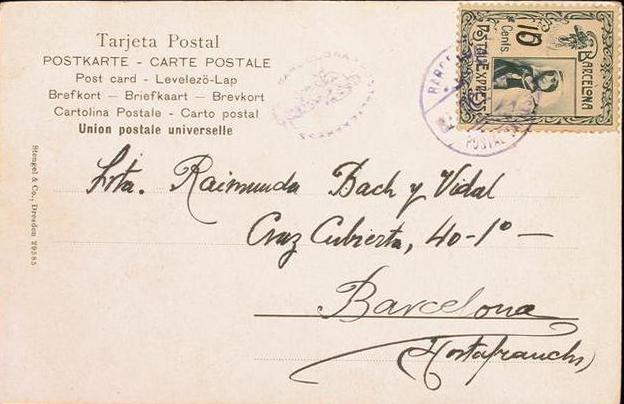 Tarjeta Postal
POSTKARTE - CARTE POSTALE
Post card - Levelezö-Lap
Brefkort - Briefkaart - Brevkort
Cartolina Postale - Carto postal
Union postale universelle
Stengel & Co., Dresden 29585
15 Cents.
BARCELONA
POSTAL EXPRESS
BARCEL
POSTAL
Srta. Raimunda Bach y Vidal
Cruz Cubierta, 40-1º —
Barcelona
(Hostafranchs)